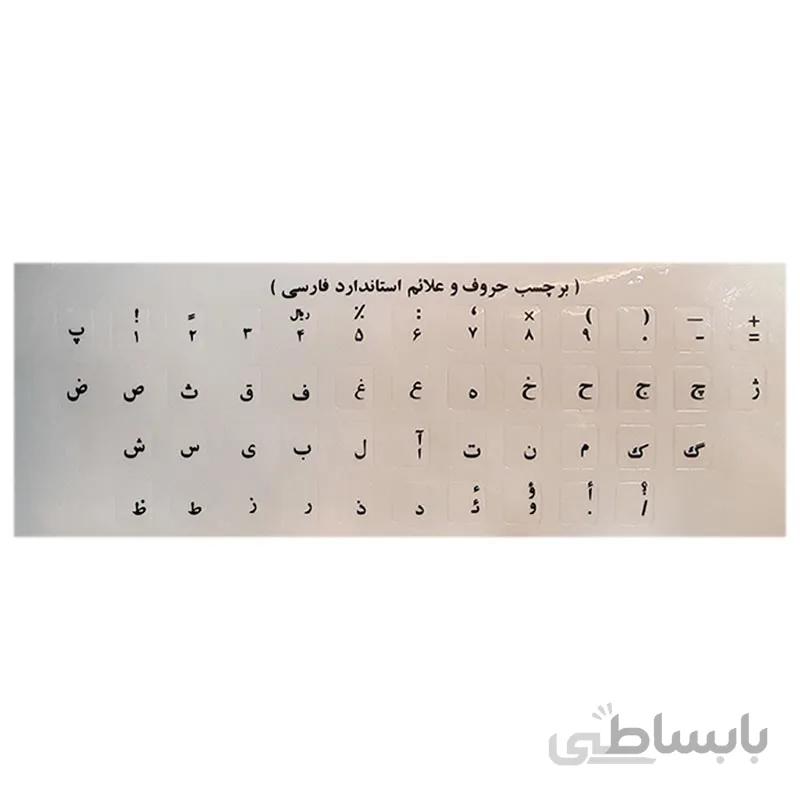 ( برچسب حروف و علائم استاندارد فارسی )
! = ریال ٪ : ، × ) ( — +
پ ۱ ۲ ۳ ۴ ۵ ۶ ۷ ۸ ۹ ۰ - =
ض ص ث ق ف غ ع ه خ ح ج چ ژ
آ
ش س ی ب ل ا ت ن م ک گ
ء ؤ أ ؟
ظ ط ز ر ذ د ئ و . /
بابساطی